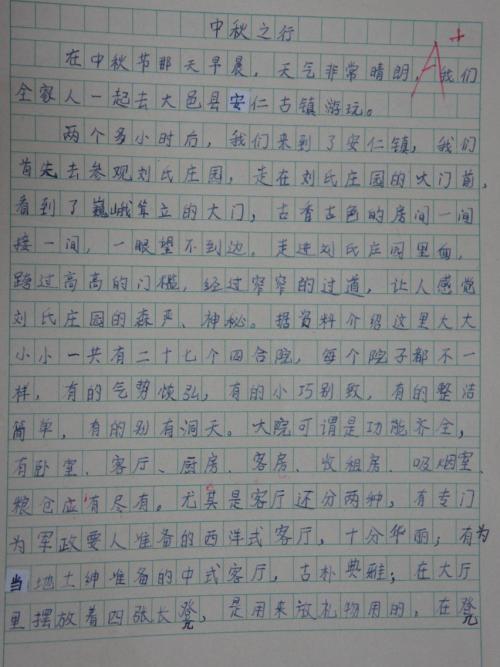 中秋之行
A+
在中秋节那天早晨，天气非常晴朗，我们
全家人一起去大邑县安仁古镇游玩。
两个多小时后，我们来到了安仁镇，我们
首先去参观刘氏庄园，走在刘氏庄园的大门前，
看到了巍峨耸立的大门，古香古色的房间一间
接一间，一眼望不到边。走进刘氏庄园里面，
跨过高高的门槛，经过窄窄的过道，让人感觉
刘氏庄园的森严、神秘。据资料介绍这里大大
小小一共有二十七个四合院，每个院子都不一
样，有的气势恢弘，有的小巧别致，有的整洁
简单，有的别有洞天。大院可谓是功能齐全，
有卧室、客厅、厨房、客房、收租房、吸烟室、
粮仓应有尽有。尤其是客厅还分两种，有专门
为军政要人准备的西洋式客厅，十分华丽；有为
当地土绅准备的中式客厅，古朴典雅；在大厅
里摆放着四张长凳，是用来放礼物用的，在凳